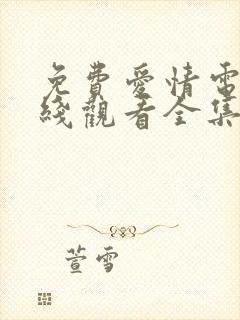 免費愛情電
綫觀看全集
萱雪